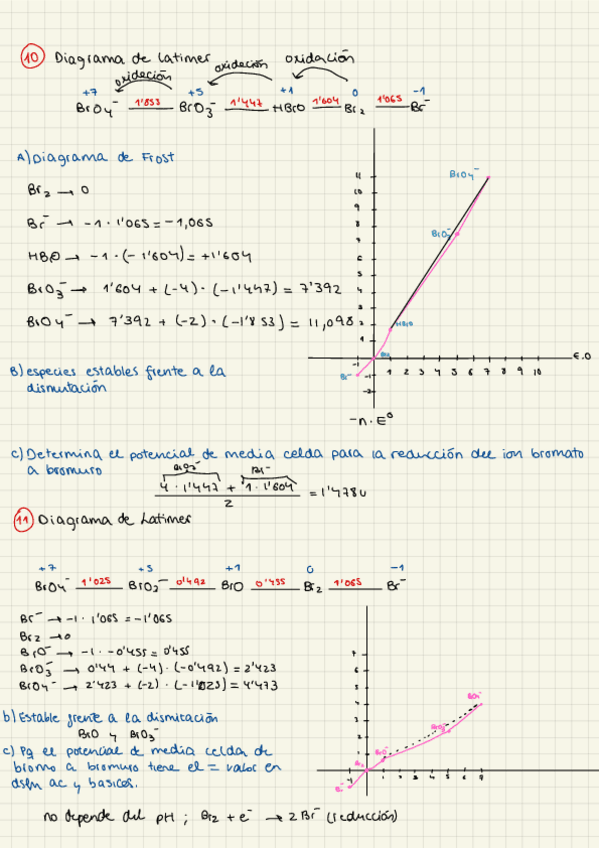 10 Diagrama de Latimer
oxidación oxidación oxidación
+7 +5 +1 0 -1
BrO4⁻ 1'853 BrO3⁻ 1'447 HBrO 1'604 Br2 1'065 Br⁻
A) Diagrama de Frost
Br2 → 0
Br⁻ → -1 · 1'065 = -1,065
HBrO → -1 · (-1'604) = +1'604
BrO3⁻ → 1'604 + (-4) · (-1'447) = 7'392
BrO4⁻ → 7'392 + (-2) · (-1'853) = 11,098
BrO4⁻
BrO3⁻
HBrO
Br2
Br⁻
11
10
9
8
7
6
5
4
3
2
1
-1 1 2 3 4 5 6 7 8 9 10 E.O
-1
-2
-n·E⁰
B) especies estables frente a la
dismutación
C) Determina el potencial de media celda para la reducción del ion bromato
a bromuro
BrO3⁻ Br⁻
4 · 1'447 + 1 · 1'604
2
= 1'478 V
11 Diagrama de Latimer
+7 +5 +1 0 -1
BrO4⁻ 1'025 BrO3⁻ 0'492 BrO 0'455 Br2 1'065 Br⁻
Br⁻ → -1 · 1'065 = -1'065
Br2 → 0
BrO⁻ → -1 · -0'455 = 0'455
BrO3⁻ → 0'44 + (-4) · (-0'492) = 2'423
BrO4⁻ → 2'423 + (-2) · (-1'025) = 4'473
7
6
5
4
3
2
1
BrO4⁻
BrO3⁻
BrO⁻
Br2
Br⁻
-1 1 2 3 4 5 6 7
b) Estable frente a la dismicación
BrO y BrO3⁻
c) Pq el potencial de media celda de
bromo a bromuro tiene el = valor en
dsln ac y basicas.
no depende del pH ; Br2 + e⁻ → 2 Br⁻ (reducción)